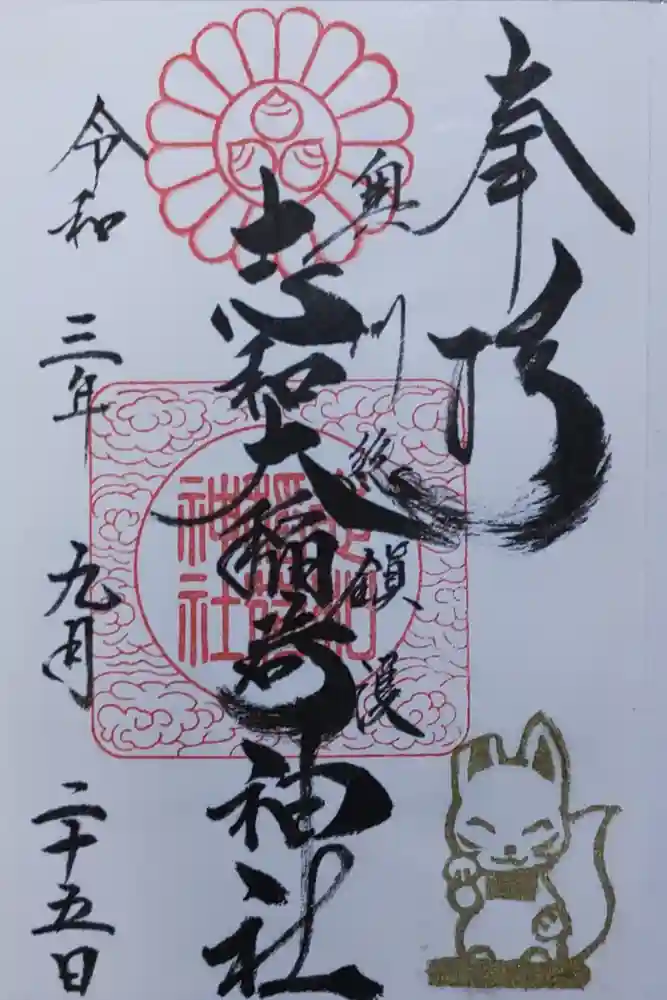 奉拝
奥州総鎮護
志和大稲荷神社
志和
稲荷
神社
令和三年九月二十五日